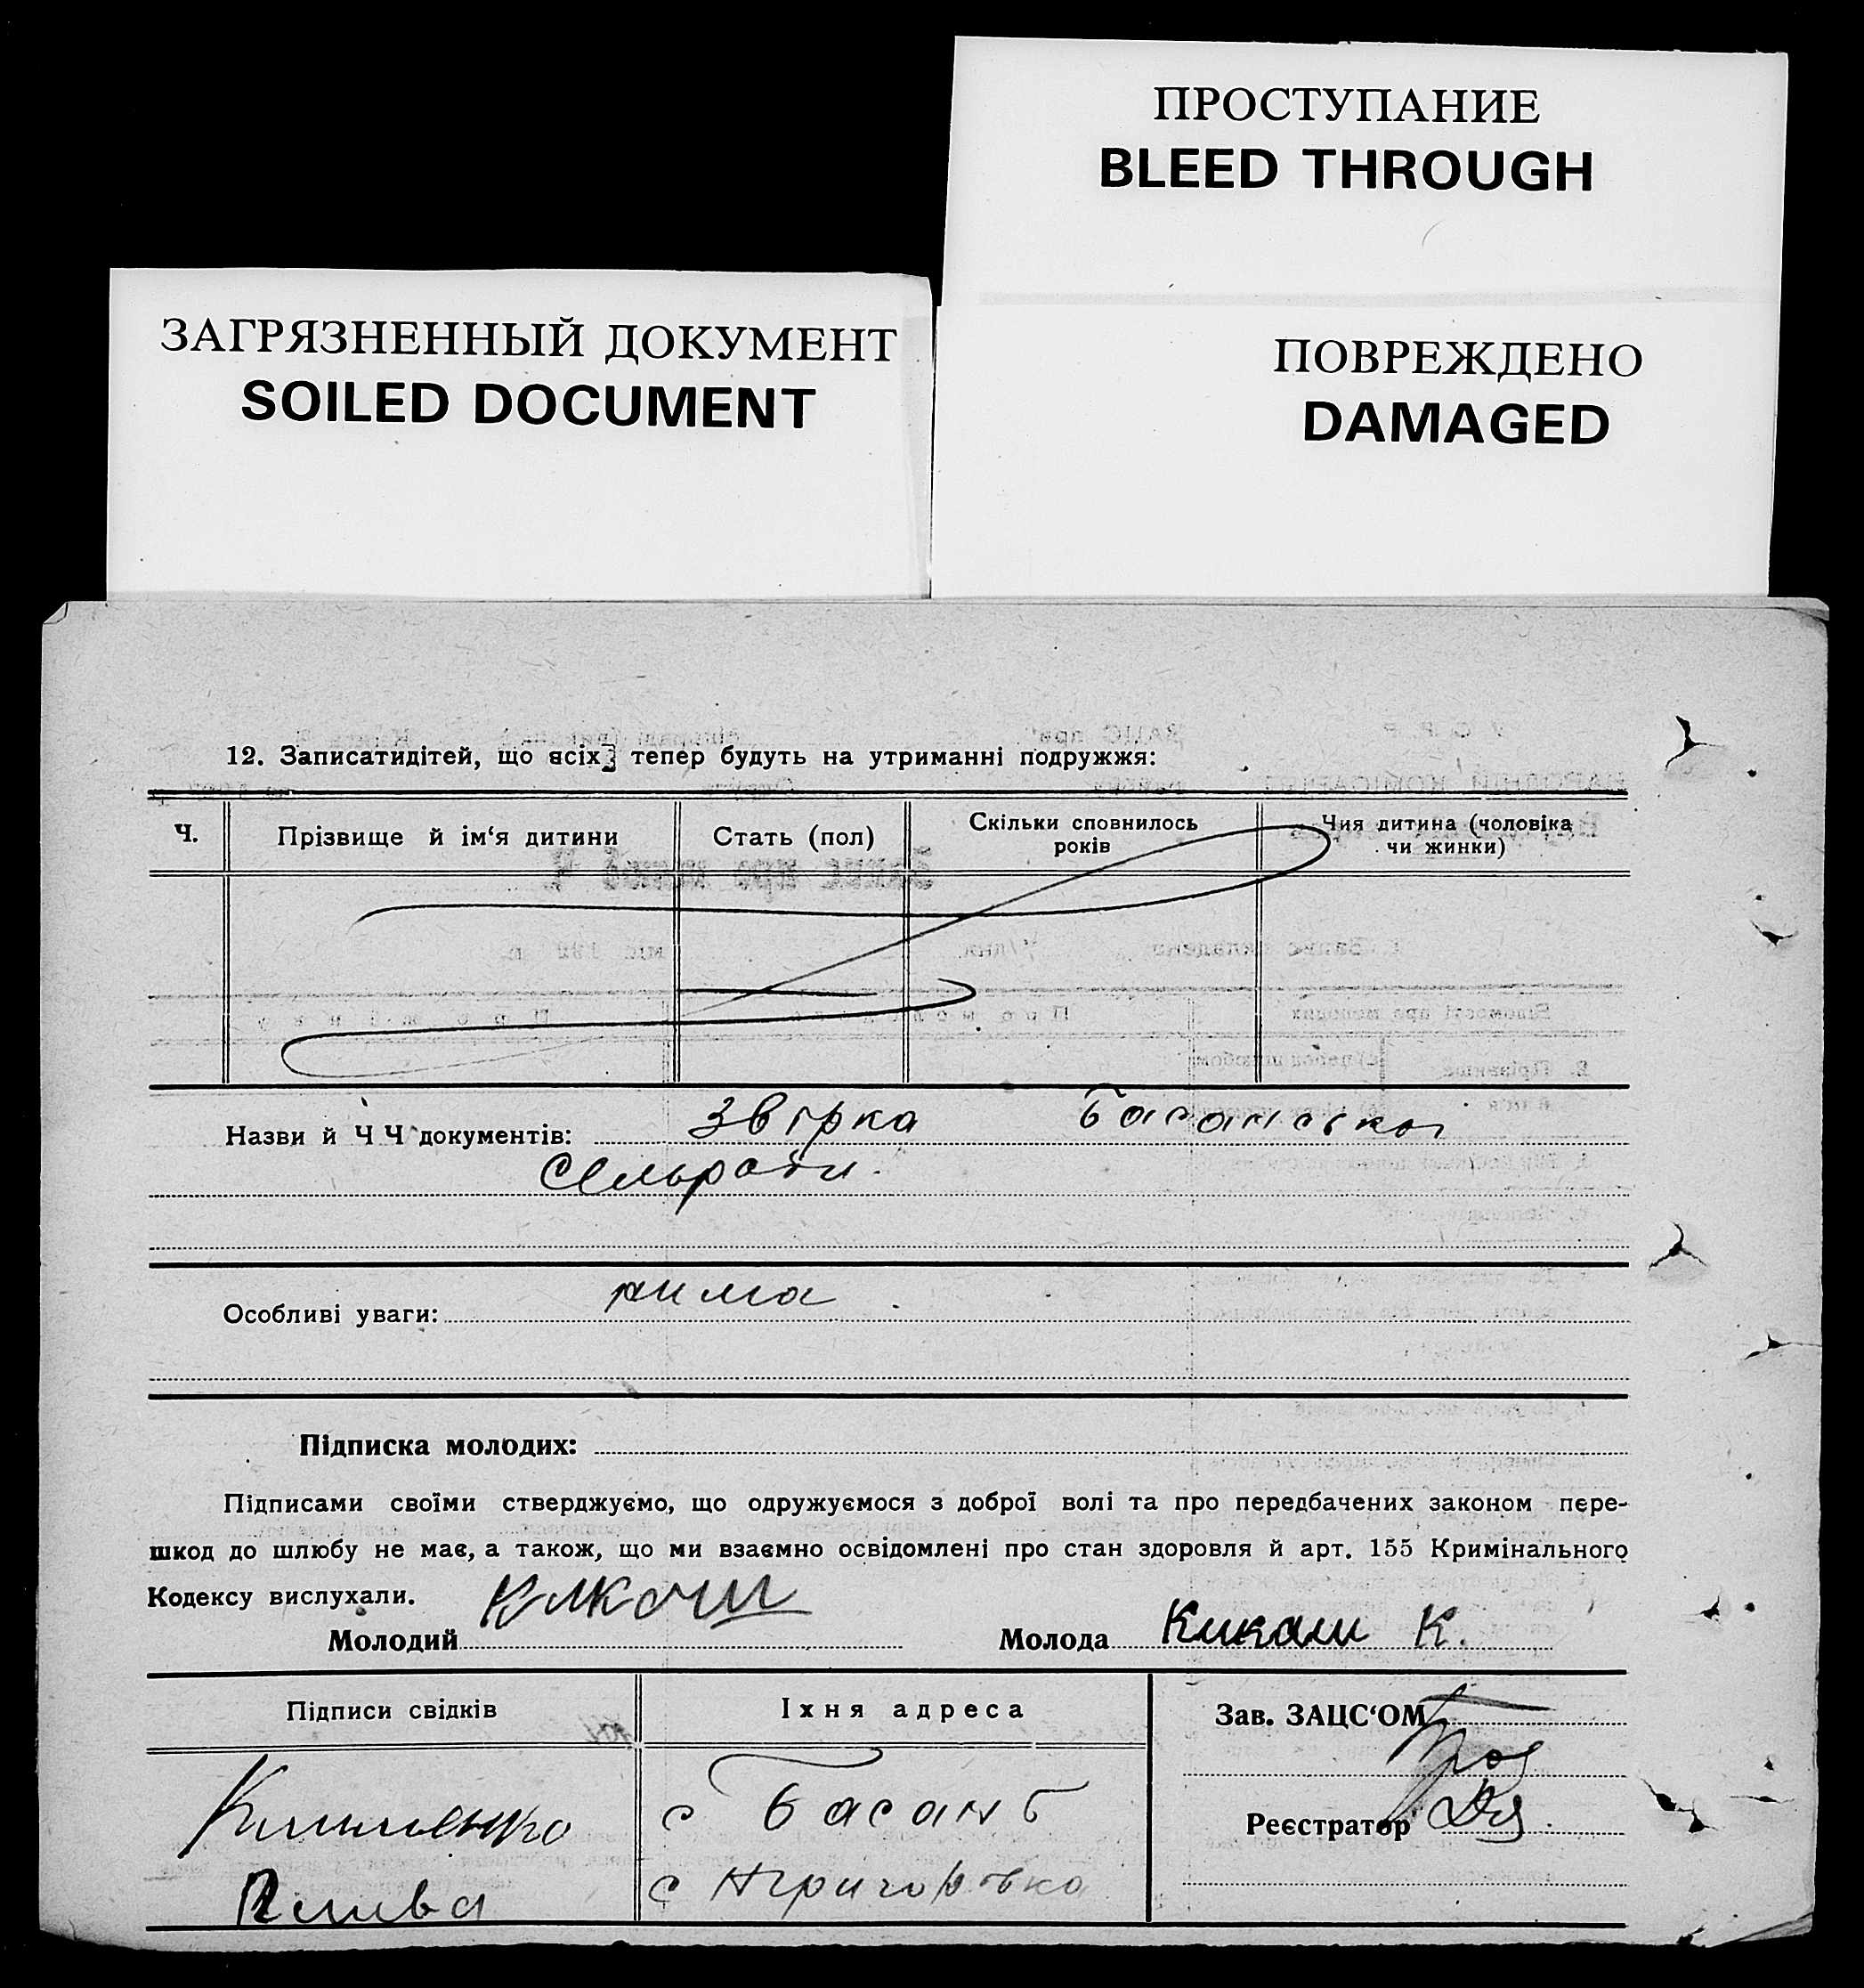 ПРОСТУПАНИЕ
BLEED THROUGH
ЗАГРЯЗНЕННЫЙ ДОКУМЕНТ
SOILED DOCUMENT
ПОВРЕЖДЕНО
DAMAGED
12. Записатидітей, що всіх тепер будуть на утриманні подружжя:
Ч. Прізвище й ім‘я дитини Стать (пол) Скільки сповнилось років Чия дитина (чоловіка чи жинки)
Назви й Ч Ч документів: Звірка Басанської
Сельради.
Особливі уваги: нима
Підписка молодих:
Підписами своїми стверджуємо, що одружуємося з доброї волі та про передбачених законом пере-
шкод до шлюбу не має, а також, що ми взаємно освідомлені про стан здоровля й арт. 155 Кримінального
Кодексу вислухали.
Молодий Кикош Молода Кикош К.
Підписи свідків Їхня адреса Зав. ЗАЦС‘ОМ
Клименко с Басань Реєстратор
с